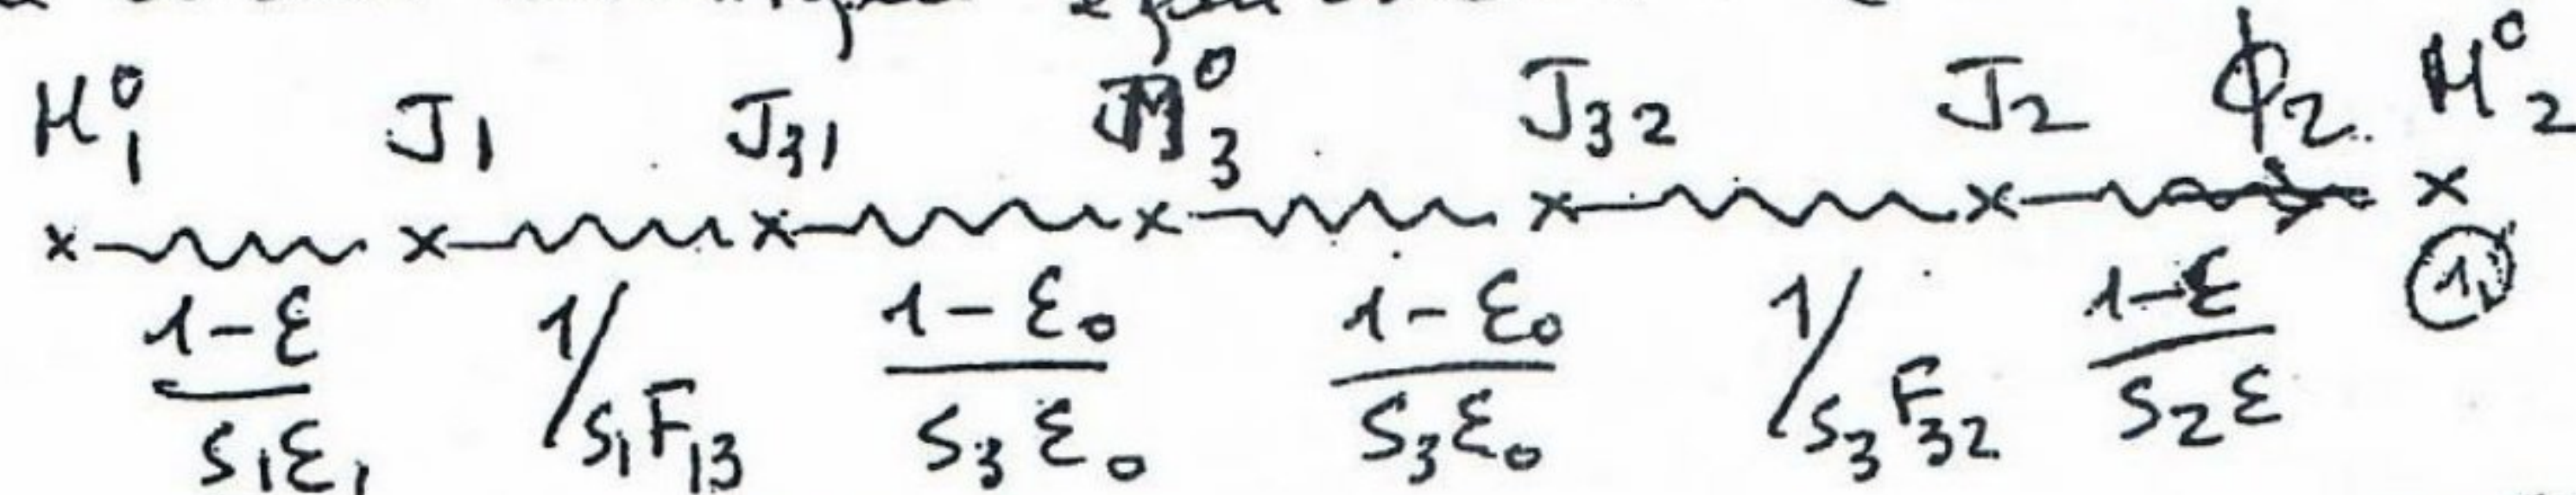 M₁⁰ J₁ J₃₁ M₃⁰ J₃₂ J₂ ϕ₂ M₂⁰
(1-ε)/(S₁ε₁) 1/S₁F₁₃ (1-ε₀)/(S₃ε₀) (1-ε₀)/(S₃ε₀) 1/S₃F₃₂ (1-ε)/(S₂ε) ①